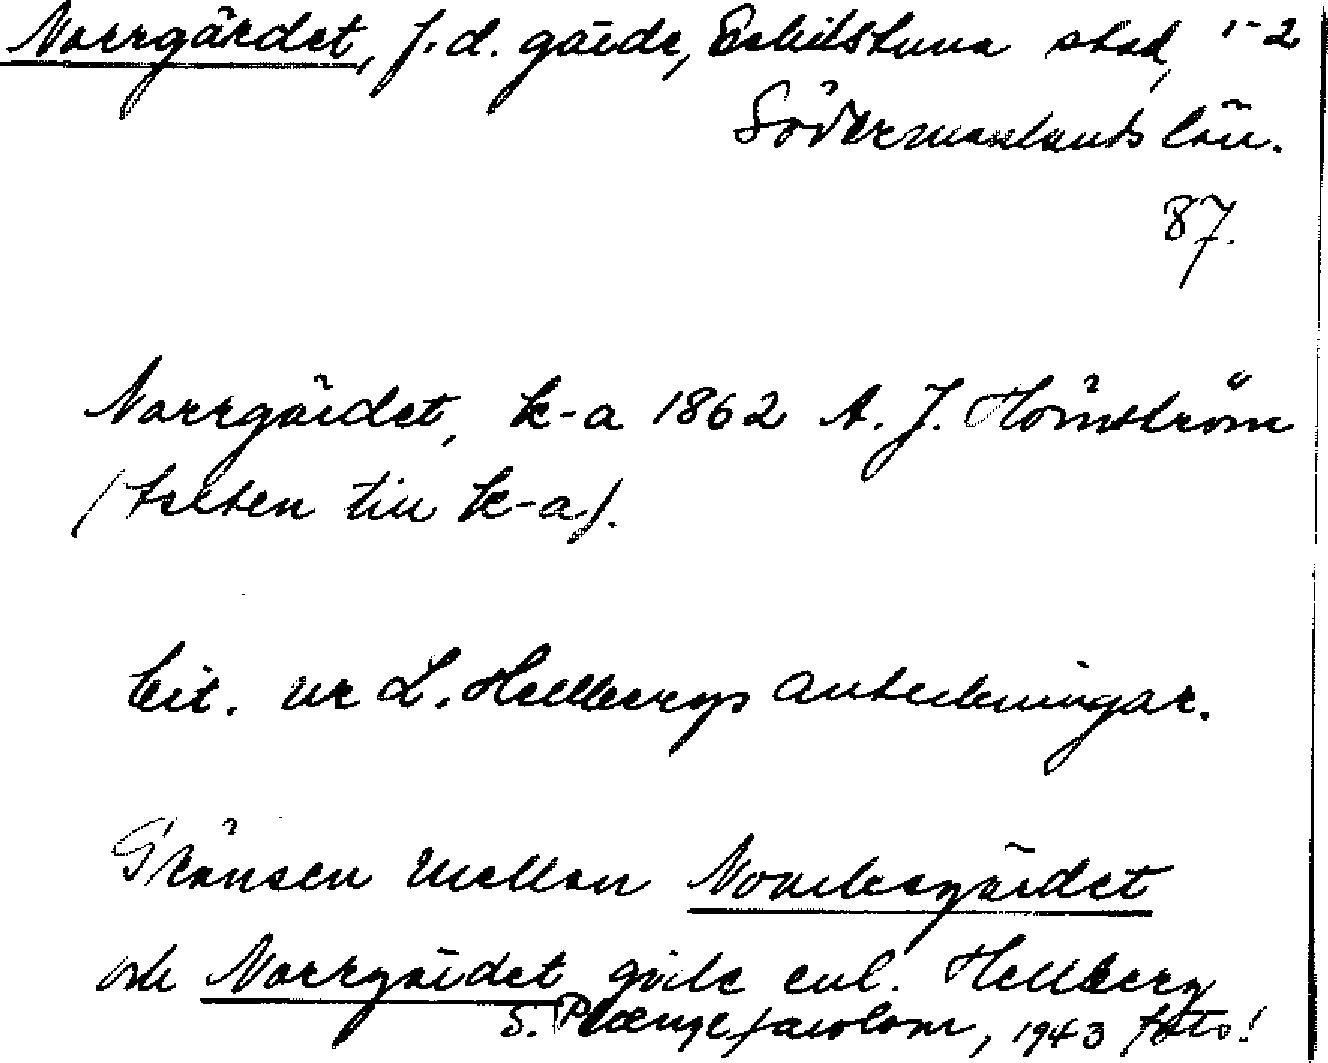 Norrgärdet, f.d. gärde, Eskilstuna stad, 1-2
Södermanlands län.
87.
Norrgärdet, k-a 1862 A. J. Hörnström
(texten till k-a).
Cit. ur L. Hellbergs anteckningar.
Gränsen mellan Nonnesgärdet
och Norrgärdet gick enl. Hellberg
S. 1943 foto!